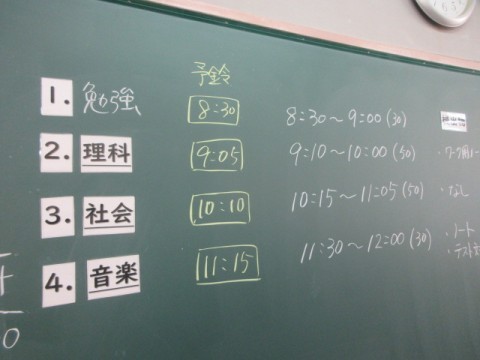 予鈴
1. 勉強 8:30 8:30〜9:00(30)
2. 理科 9:05 9:10〜10:00(50)
3. 社会 10:10 10:15〜11:05(50) ・なし
4. 音楽 11:15 11:30〜12:00(30) ・ノート
・テスト